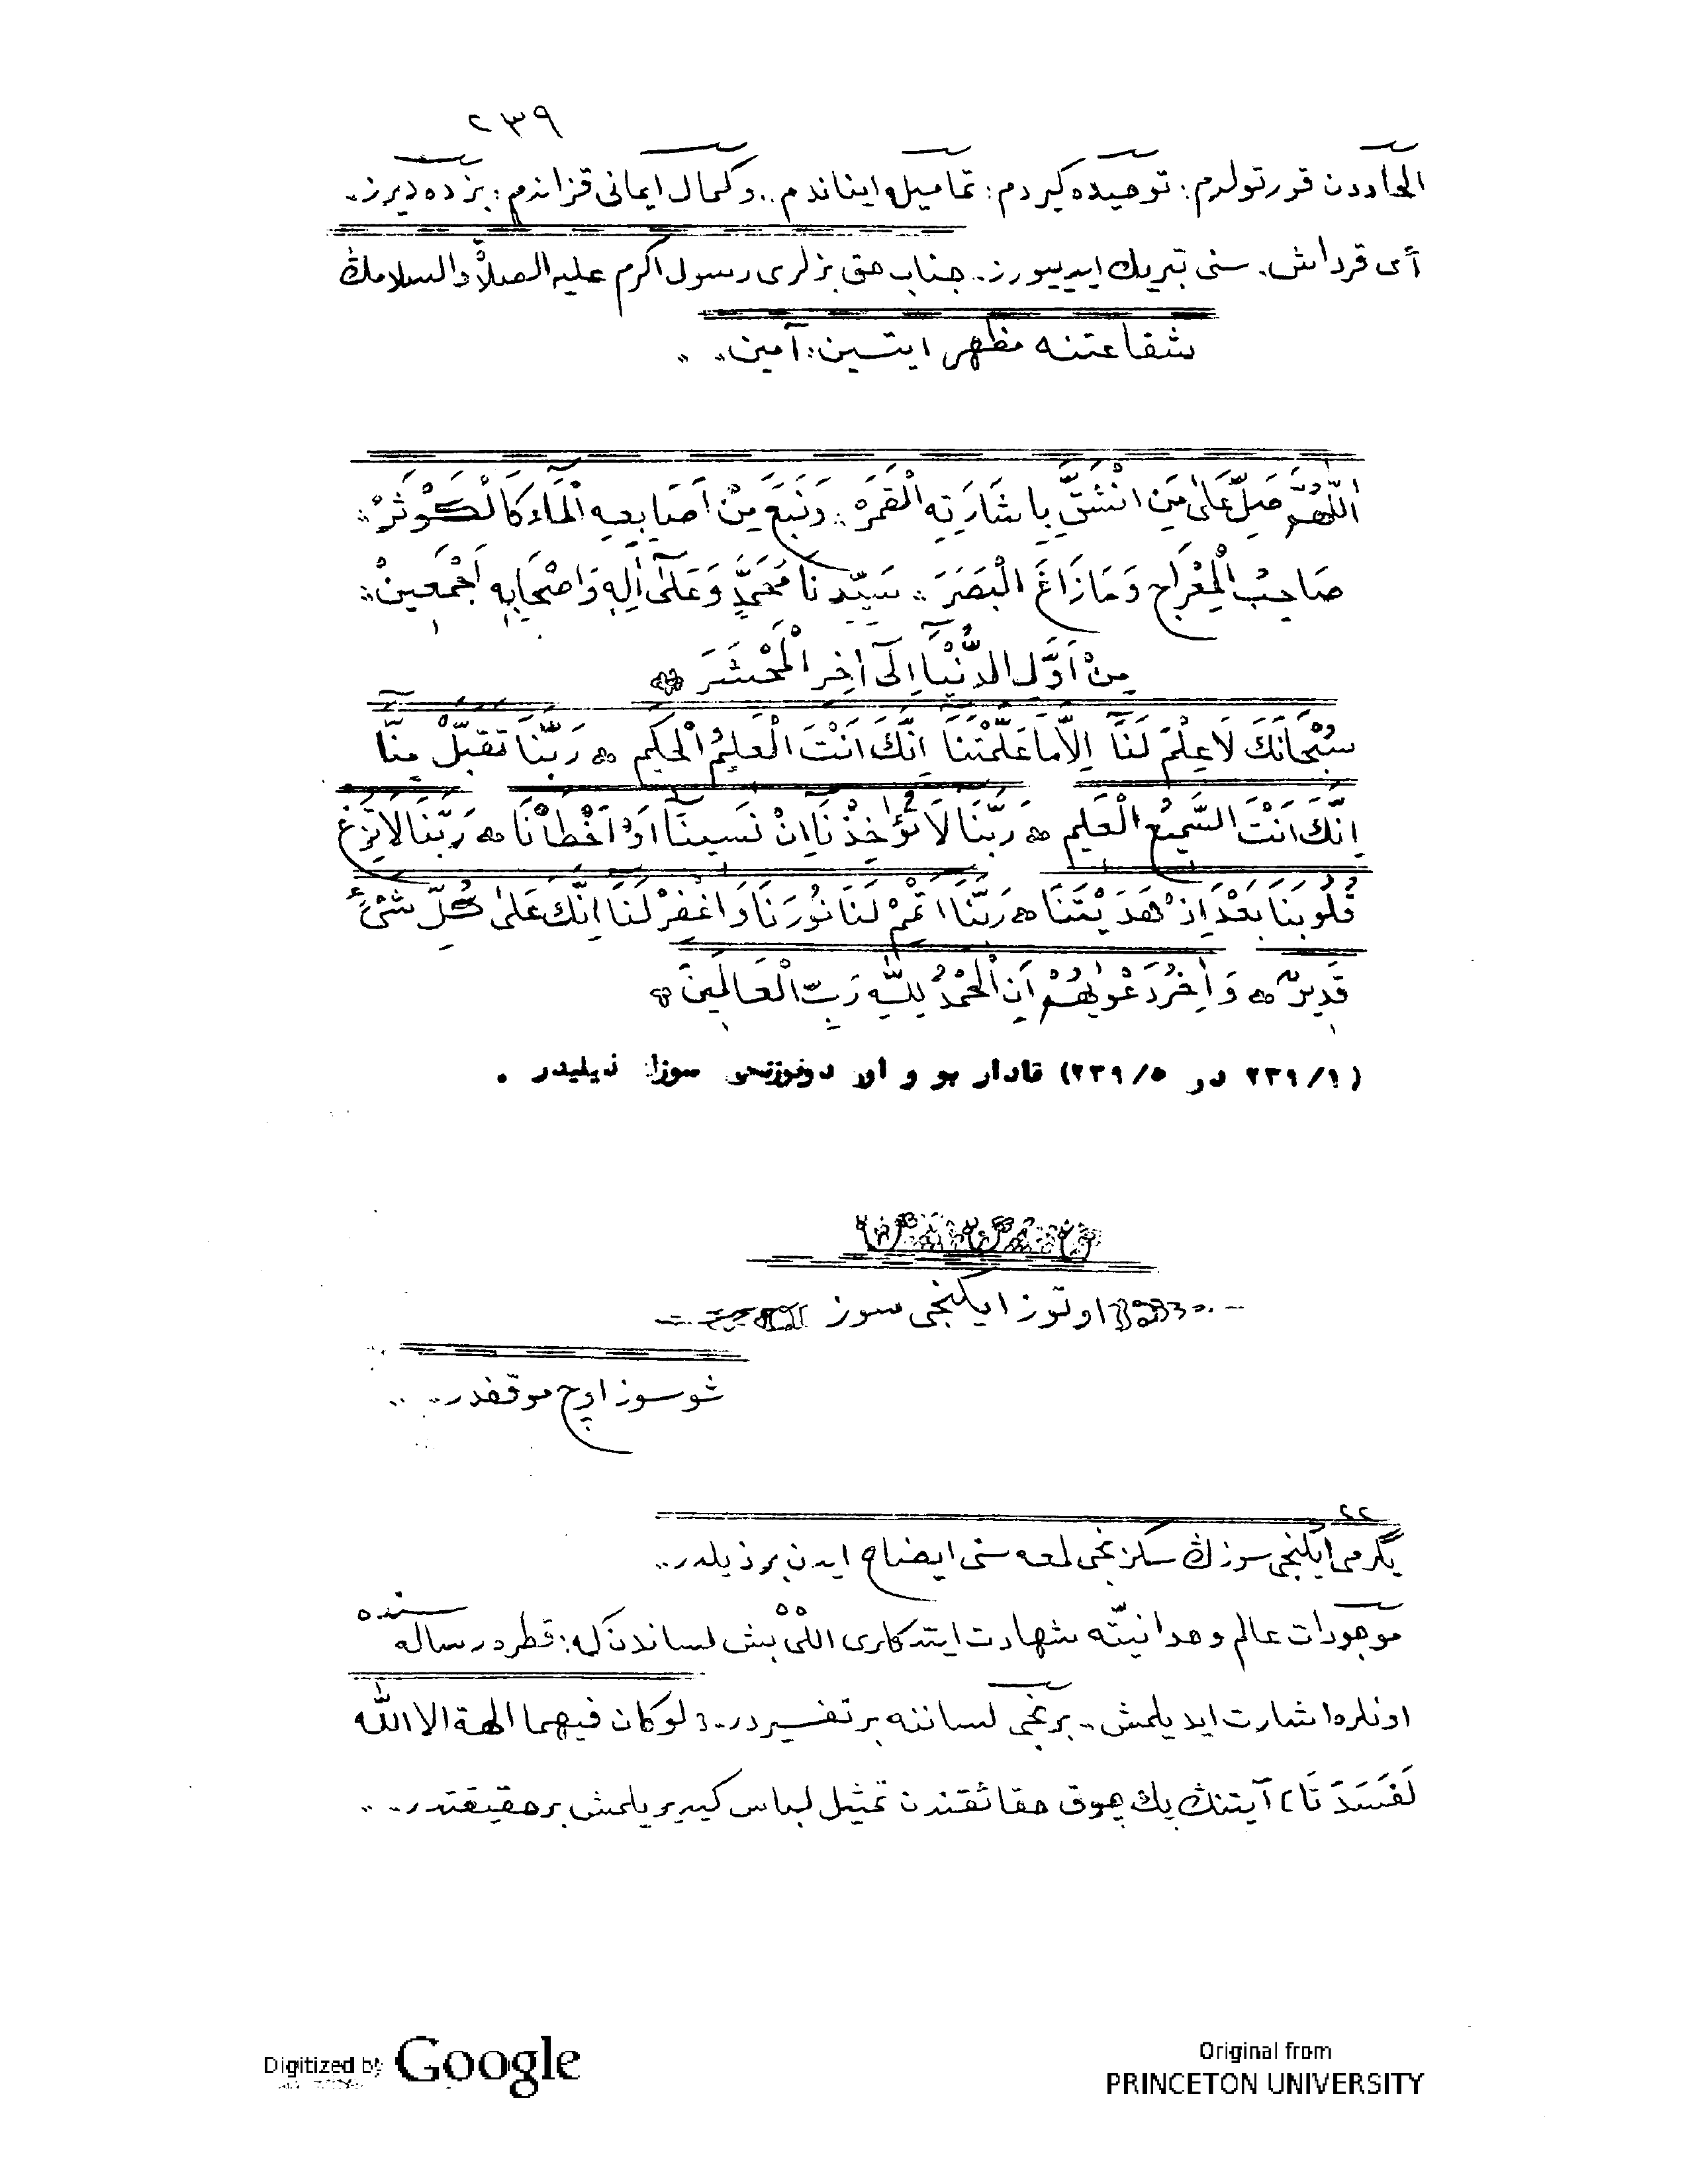 ٢٣٩
الحاددن قورتولدم؛ توحیده کیردم؛ تمامیله ایناندم.. وکمال ایمانی قزاندم؛ بزده دیرز..
أی قرداش. سنی تبریك ایدییورز.. جناب حق بزلری رسول اکرم علیه الصلاة والسلامڭ
شفاعتنه مظهر ایتسین؛ آمین.. ..
اَللّٰهُمَّ صَلِّ عَلٰى مَنِ انْشَقَّ بِاِشَارَتِهِ الْقَمَرْ .. وَنَبَعَ مِنْ اَصَابِعِهِ الْمَاءُ كَالْكَوْثَرْ ..
صَاحِبُ الْمِعْرَاجِ وَمَازَاغَ الْبَصَرَ .. سَيِّدِنَا مُحَمَّدٍ وَعَلٰٓى اٰلِهِ وَاَصْحَابِهِ اَجْمَعِينْ ..
مِنْ اَوَّلِ الدُّنْيَٓا اِلٰٓى اٰخِرِ الْمَحْشَرَ
سُبْحَانَكَ لَا عِلْمَ لَنَٓا اِلَّا مَا عَلَّمْتَنَا اِنَّكَ اَنْتَ الْعَلِيمُ الْحَكِيمِ رَبَّنَا تَقَبَّلْ مِنَّا
اِنَّكَ اَنْتَ السَّمِيعُ الْعَلِيمِ رَبَّنَا لَا تُؤَاخِذْنَٓا اِنْ نَسِينَٓا اَوْ اَخْطَاْنَا رَبَّنَا لَا تُزِغْ
قُلُوبَنَا بَعْدَ اِذْ هَدَيْتَنَا رَبَّنَٓا اَتْمِمْ لَنَا نُورَنَا وَاغْفِرْ لَنَا اِنَّكَ عَلٰى كُلِّ شَىْءٍ
قَدِيرٌ وَاٰخِرُ دَعْوٰيهُمْ اَنِ الْحَمْدُ لِلّٰهِ رَبِّ الْعَالَمِينَ
(٢٣٩/١ در ٢٣٩/٥) قادار بو و اون دوقوزنجى سوزڭ ذیلیدر .
اوتوز ایکنجی سوز
شو سوز اوچ موقفدر.. ..
٢٢
یگرمی ایکنجی سوزڭ سکزنجی لمعه سنی ایضاح ایدن بر ذیلدر..
موجودات عالم وحدانیته شهادت ایتدکلری اللی بش لساندن که؛ قطره رساله سنده
٥٥
اونلره اشارت ایدیلمش.. برنجی لساننه بر تفسیردر.. لوكان فيهما الهة الا الله
لَفَسَدَتَا) آیتنڭ پك چوق حقائقندن تمثیل لباسی کیدیریلمش بر حقیقتدر.. ..
Digitized by Google
Original from
PRINCETON UNIVERSITY